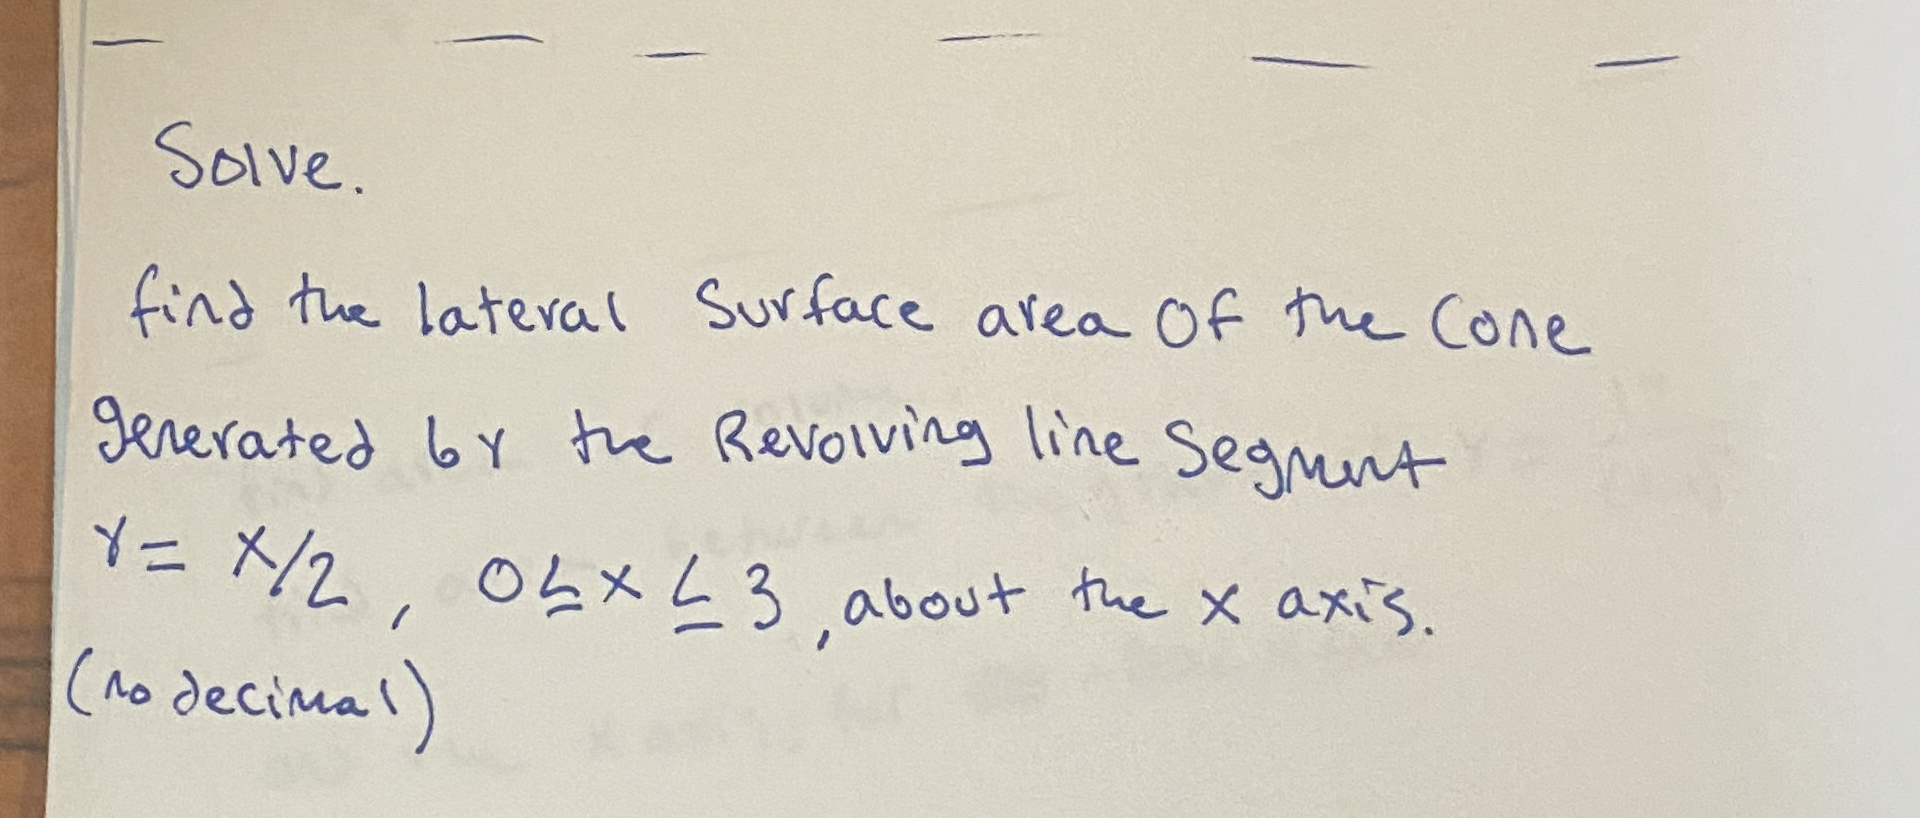 Solve.
find the lateral Surface area of the Cone
generated by the Revolving line Segment
Y = X/2, 0 ≤ x ≤ 3, about the x axis.
(no decimal)